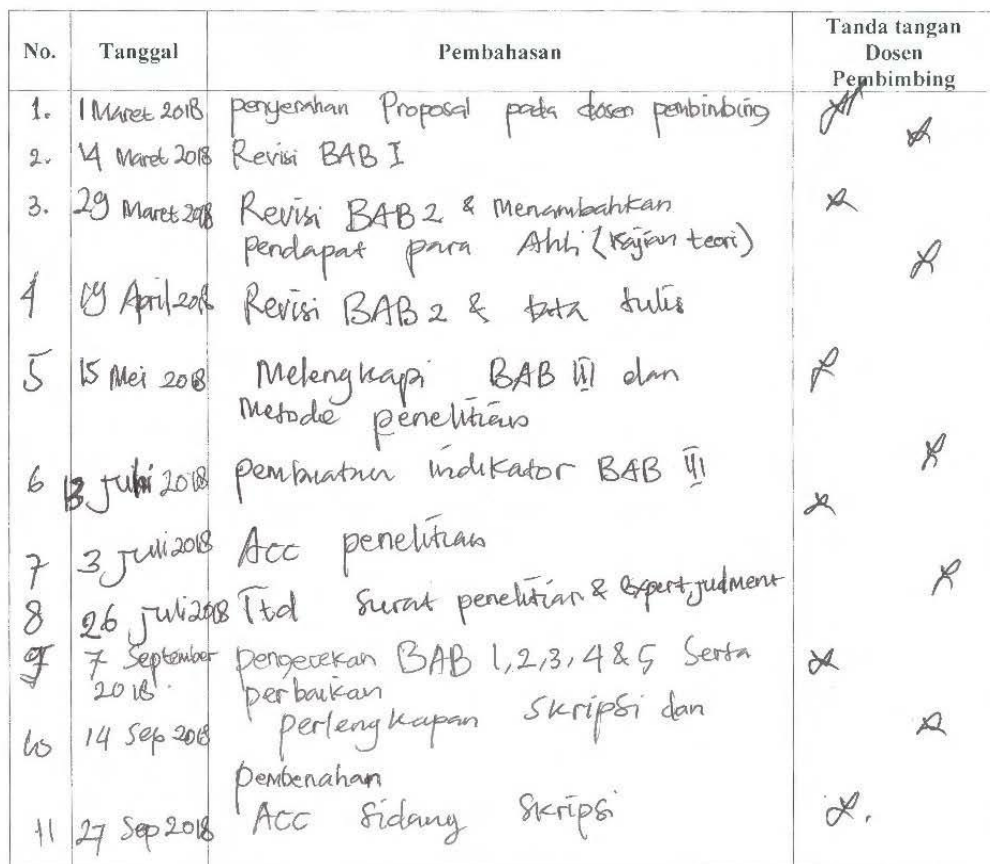 No. Tanggal Pembahasan Tanda tangan Dosen Pembimbing
1. 1 Maret 2018 penyerahan Proposal pada dosen pembimbing
2. 14 Maret 2018 Revisi BAB I
3. 29 Maret 2018 Revisi BAB 2 & Menambahkan
pendapat para Ahli (kajian teori)
4 19 April 2018 Revisi BAB 2 & tata tulis
5 15 Mei 2018 Melengkapi BAB III dan
Metode penelitian
6 2018 pembuatan indikator BAB III
7 3 juli 2018 Acc penelitian
8 26 juli 2018 Ttd Surat penelitian & Expert judment
9 7 September 2018. pengecekan BAB 1,2,3,4 & 5 Serta
perbaikan
10 14 Sep 2018 perlengkapan Skripsi dan
pembenahan
11 27 Sep 2018 Acc Sidang Skripsi